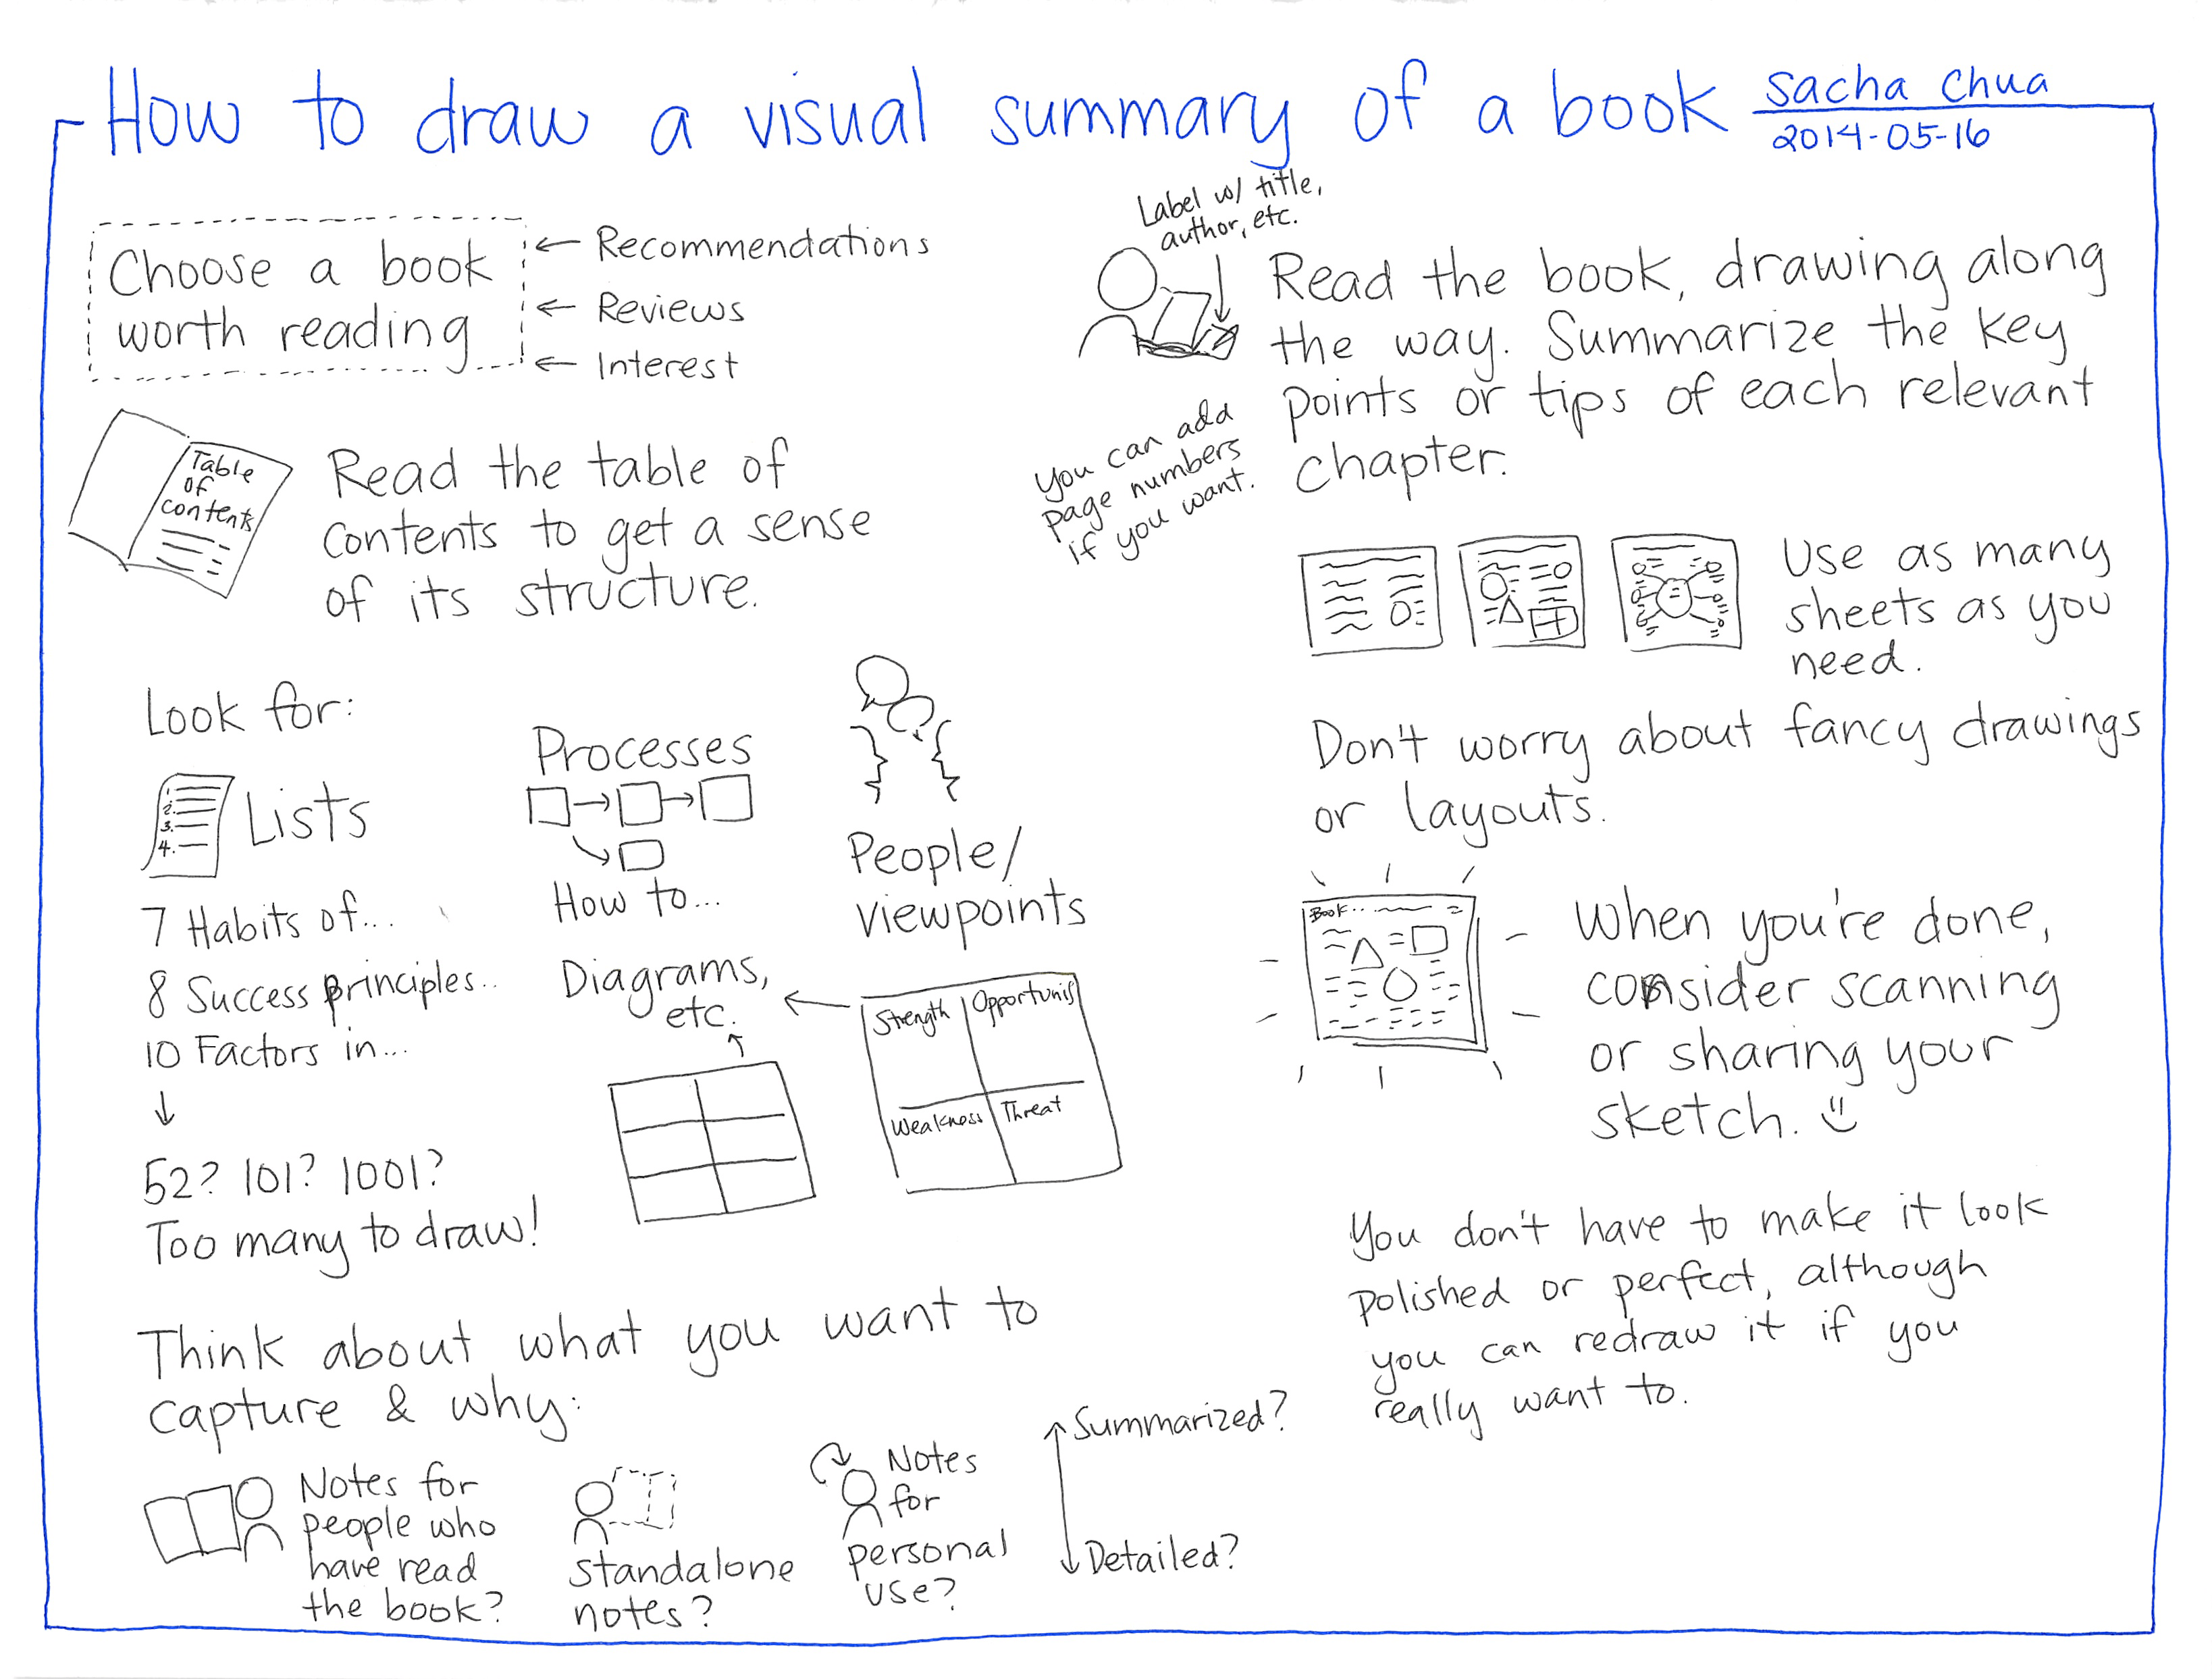 How to draw a visual summary of a book
sacha chua
2014-05-16
Choose a book
worth reading
← Recommendations
← Reviews
← Interest
Table
of
contents
Read the table of
contents to get a sense
of its structure.
Look for:
1.
2.
3.
4.
Lists
7 Habits of...
8 Success principles..
10 Factors in...
↓
52? 101? 1001?
Too many to draw!
Processes
How to...
People/
viewpoints
Diagrams,
etc.
Strength
Opportunis
Weakness
Threat
Think about what you want to
capture & why:
Notes for
people who
have read
the book?
standalone
notes?
Notes
for
personal
use?
Summarized?
Detailed?
Label w/ title,
author, etc.
Read the book, drawing along
the way. Summarize the key
points or tips of each relevant
chapter.
You can add
page numbers
if you want.
Use as many
sheets as you
need.
Don't worry about fancy drawings
or layouts.
Book..
When you're done,
consider scanning
or sharing your
sketch. :)
You don't have to make it look
polished or perfect, although
you can redraw it if you
really want to.